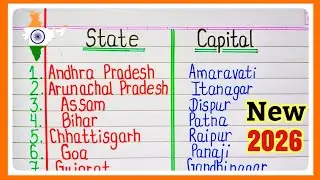 State Capital
1. Andhra Pradesh Amaravati
2. Arunachal Pradesh Itanagar
3. Assam Dispur
4. Bihar Patna
5. Chhattisgarh Raipur
6. Goa Panaji
7. Gujarat Gandhinagar
New
2026